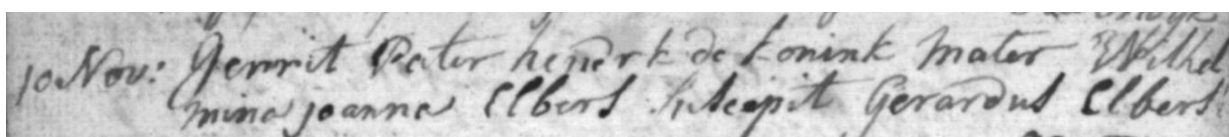 10 Nov: Gerrit Pater hendrk de konink Mater Wilhel
mina joanna Elbers Suscepit Gerardus Elbers